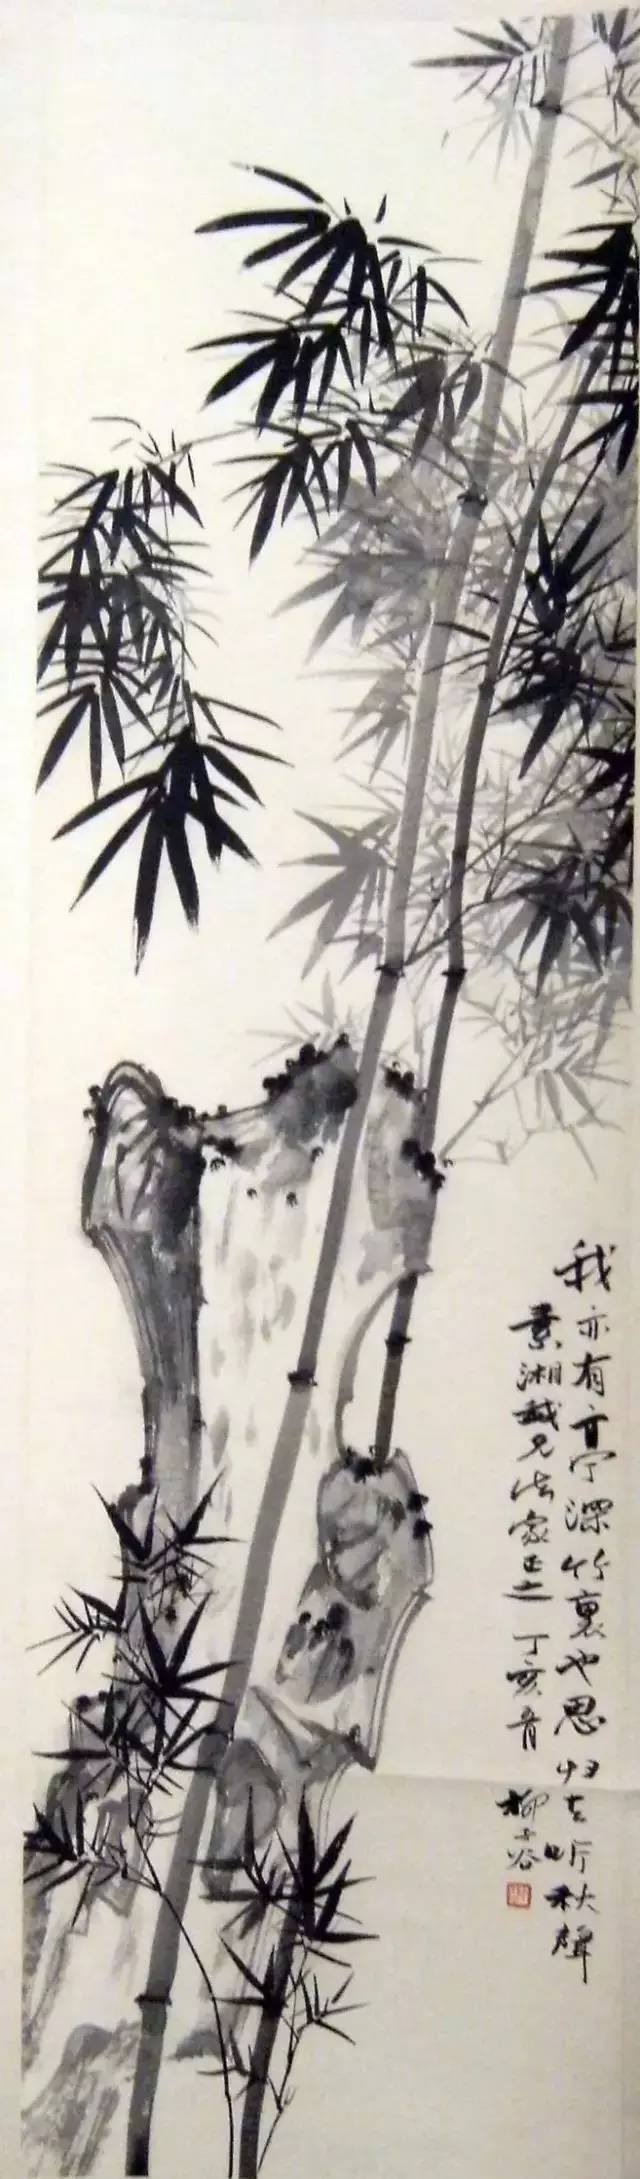 我亦有亭深竹裏也思归去听秋聲
湘兄法家正之 丁亥 柳子谷